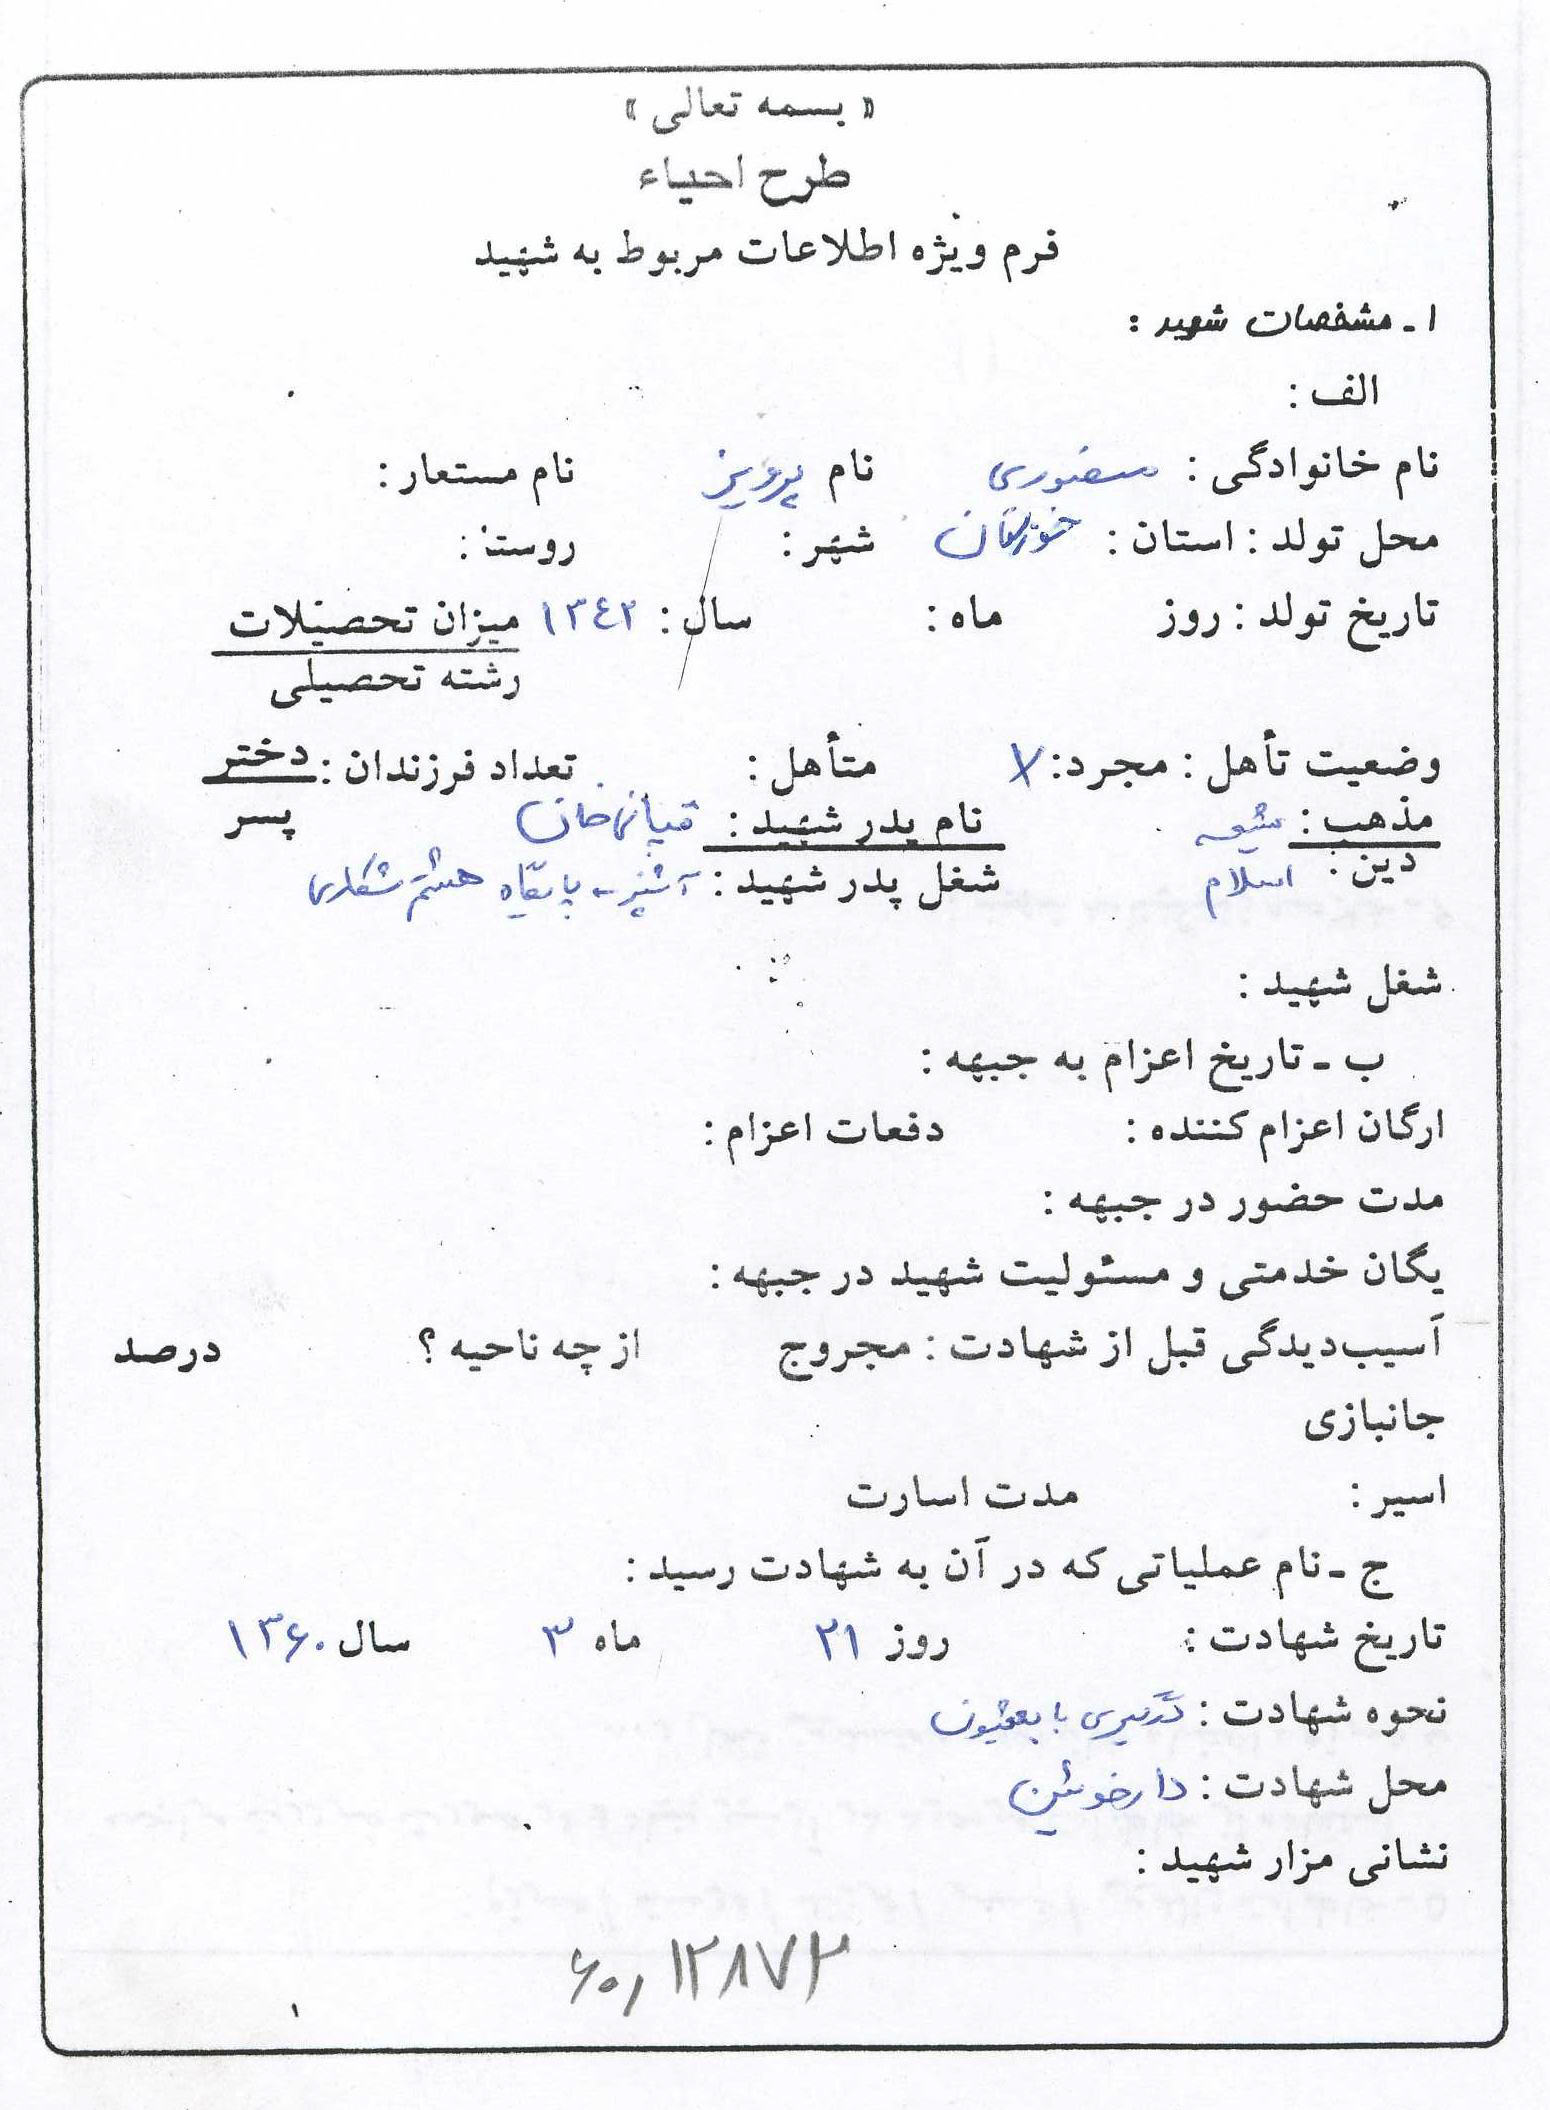 « بسمه تعالی »
طرح احیاء
فرم ویژه اطلاعات مربوط به شهید
۱ـ مشخصات شهید :
الف :
نام خانوادگی : منصوری نام پرویز نام مستعار :
محل تولد : استان : خوزستان شهر : روستا :
تاریخ تولد : روز ماه : سال : ۱۳۴۲ میزان تحصیلات
رشته تحصیلی
وضعیت تأهل : مجرد : X متأهل : تعداد فرزندان : دختر
مذهب : شیعه نام پدر شهید : پسر
دین : اسلام شغل پدر شهید : آشپز - پایگاه هشتم شکاری
شغل شهید :
ب ـ تاریخ اعزام به جبهه :
ارگان اعزام کننده : دفعات اعزام :
مدت حضور در جبهه :
یگان خدمتی و مسئولیت شهید در جبهه :
آسیب‌دیدگی قبل از شهادت : مجروح از چه ناحیه ؟ درصد
جانبازی
اسیر : مدت اسارت
ج ـ نام عملیاتی که در آن به شهادت رسید :
تاریخ شهادت : روز ۲۱ ماه ۳ سال ۱۳۶۰
نحوه شهادت : درگیری با بعثیون
محل شهادت : دارخوئین
نشانی مزار شهید :
۶۰,۱۲۸۷۲
۱